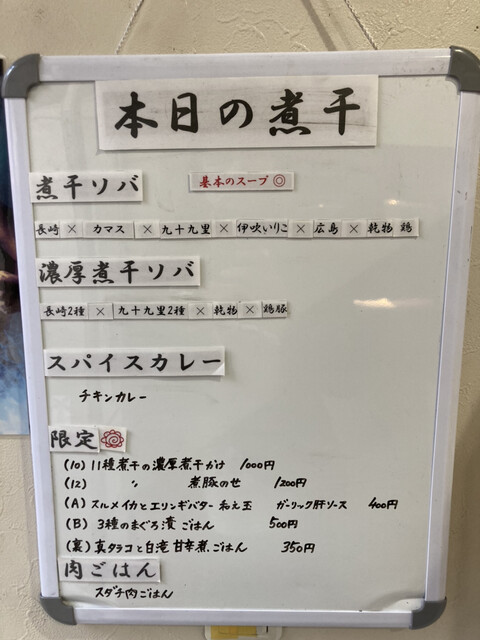 本日の煮干
煮干ソバ 基本のスープ◎
長崎×カマス×九十九里×伊吹いりこ×広島×乾物 鶏
濃厚煮干ソバ
長崎2種×九十九里2種×乾物×鶏豚
スパイスカレー
チキンカレー
限定
(10) 11種煮干の濃厚煮干かけ 1000円
(12) 〃 煮豚のせ 1200円
(A) スルメイカとエリンギバター和え玉 ガーリック肝ソース 400円
(B) 3種のまぐろ漬ごはん 500円
(裏) 真タラコと白滝 甘辛煮ごはん 350円
肉ごはん
スダチ肉ごはん